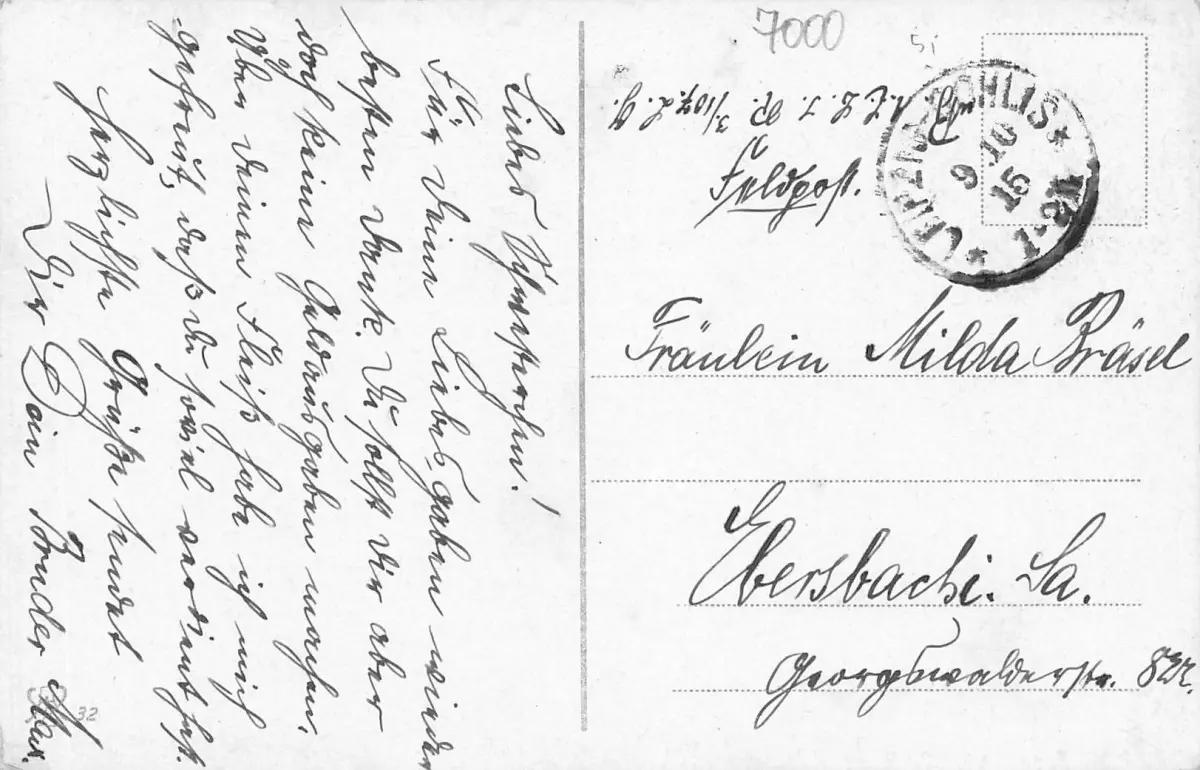 Liebes Schwesterchen!
Für Deine Liebesgaben wieder
besten Dank. Du sollst Dir aber
doch keine Geldausgaben machen.
Über Deinen Fleiß habe ich mich
gefreut, daß Du soviel verdient hast.
Herzlichste Grüße sendet
Dir Dein Bruder Max.
32
7000
51
Feldpost.
LEIPZIG-GOHLIS
9 10
15
Fräulein Milda Bräsel
Ebersbach i. Sa.
Georgswalderstr.